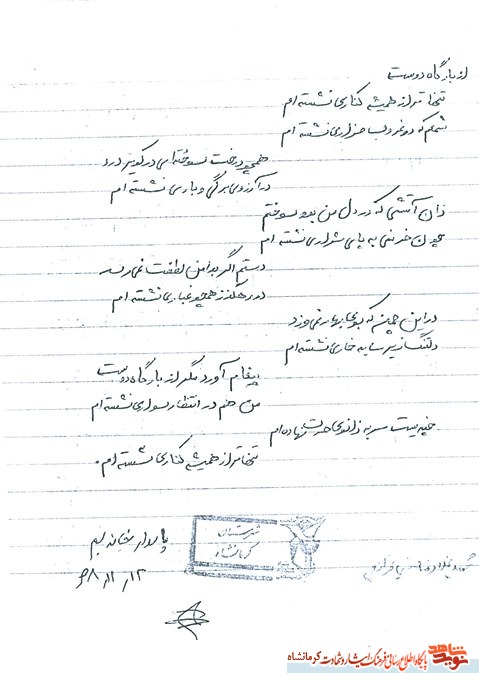 از بارگاه دوست
تنهاتر از همیشه کناری نشسته ام
شمعم که در غروب مزاری نشسته ام
همچو درخت سوخته ای در کویر درد
در آرزوی برگی و باری نشسته ام
زان آتشی که در دل من بود سوختم
چون خرمنی به پای شراری نشسته ام
دستم اگر بدامن لطفت نمی رسد
در رهگذر همچو غباری نشسته ام
در این چمن که بوی بهار نمی وزد
دلتنگ زیر سایه خاری نشسته ام
پیغام آورد مگر از بارگاه دوست
من هم در انتظار سواری نشسته ام
سر به زانوی حسرت نهاده ام
تنهاتر از همیشه کناری نشسته ام.
شهرستان
کرمانشاه
پاسدار
شهید
نوید شاهد
پایگاه اطلاع رسانی فرهنگ ایثار و شهادت کرمانشاه